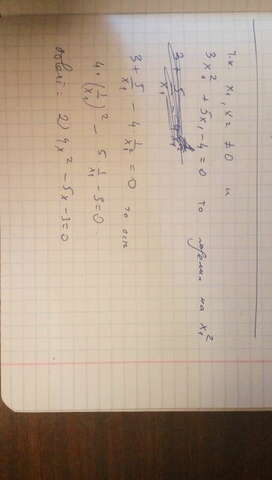 т.к. x₁, x₂ ≠ 0 и
3x₁² + 5x₁ - 4 = 0 то поделим на x₁²
3 + 5/x₁ - 4 1/x₁² = 0 то есть
4 · (1/x₁)² - 5 · 1/x₁ - 3 = 0
ответ: 2) 4x² - 5x - 3 = 0